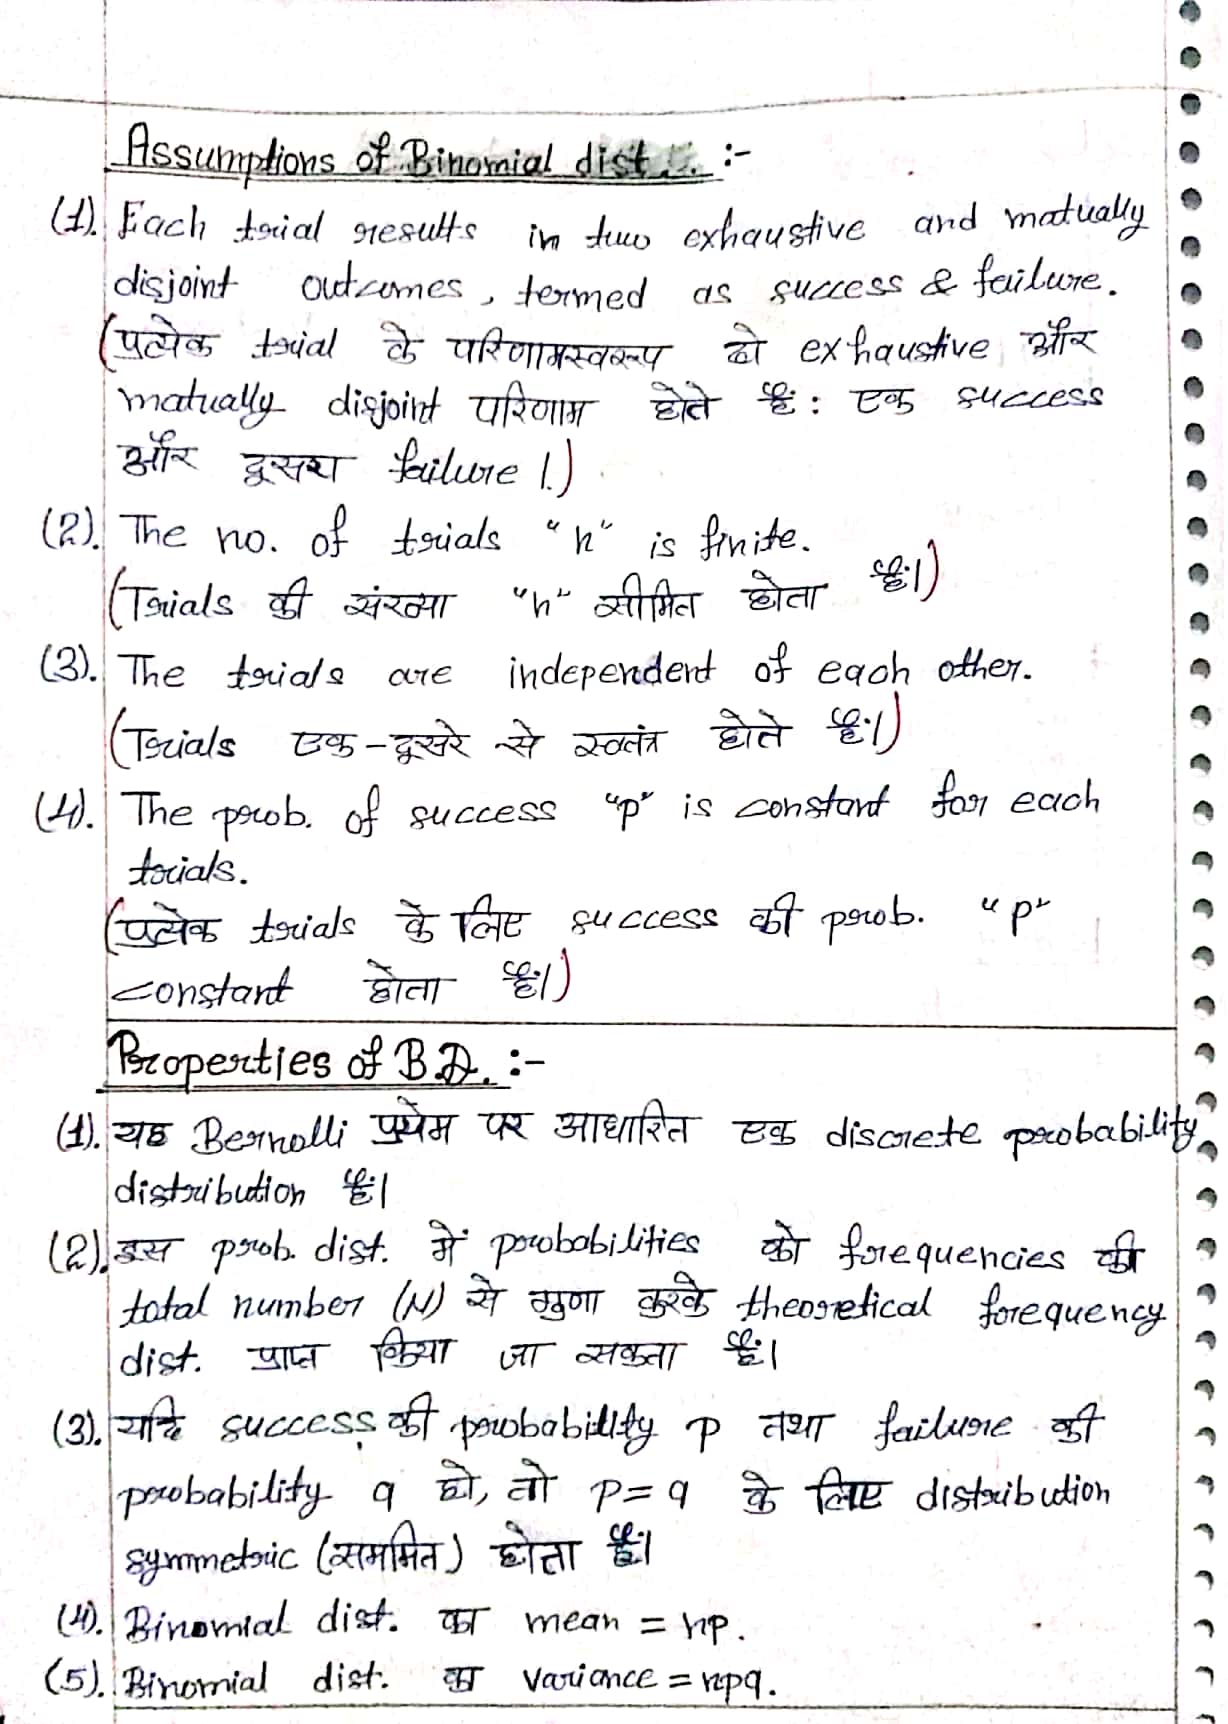 Assumptions of Binomial dist. :-
(1). Each trial results in two exhaustive and matually
disjoint outcomes, termed as success & failure.
(प्रत्येक trial के परिणामस्वरूप दो exhaustive और
matually disjoint परिणाम होते हैं: एक success
और दूसरा failure ।)
(2). The no. of trials "n" is finite.
(Trials की संख्या "n" सीमित होता है।)
(3). The trials are independent of each other.
(Trials एक-दूसरे से स्वतंत्र होते हैं।)
(4). The prob. of success "p" is constant for each
trials.
(प्रत्येक trials के लिए success की prob. "p"
constant होता है।)
Properties of B.D. :-
(1). यह Bernolli प्रमेय पर आधारित एक discrete probability
distribution है।
(2). इस prob. dist. में probabilities को frequencies की
total number (N) से गुणा करके theoretical frequency
dist. प्राप्त किया जा सकता है।
(3). यदि success की probability p तथा failure की
probability q हो, तो p=q के लिए distribution
symmetric (सममित) होता है।
(4). Binomial dist. का mean = np.
(5). Binomial dist. का variance = npq.